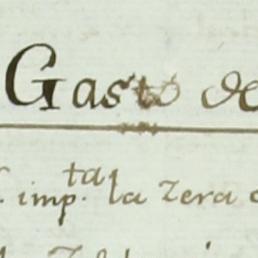 Gasto de
imp.ta la Zera